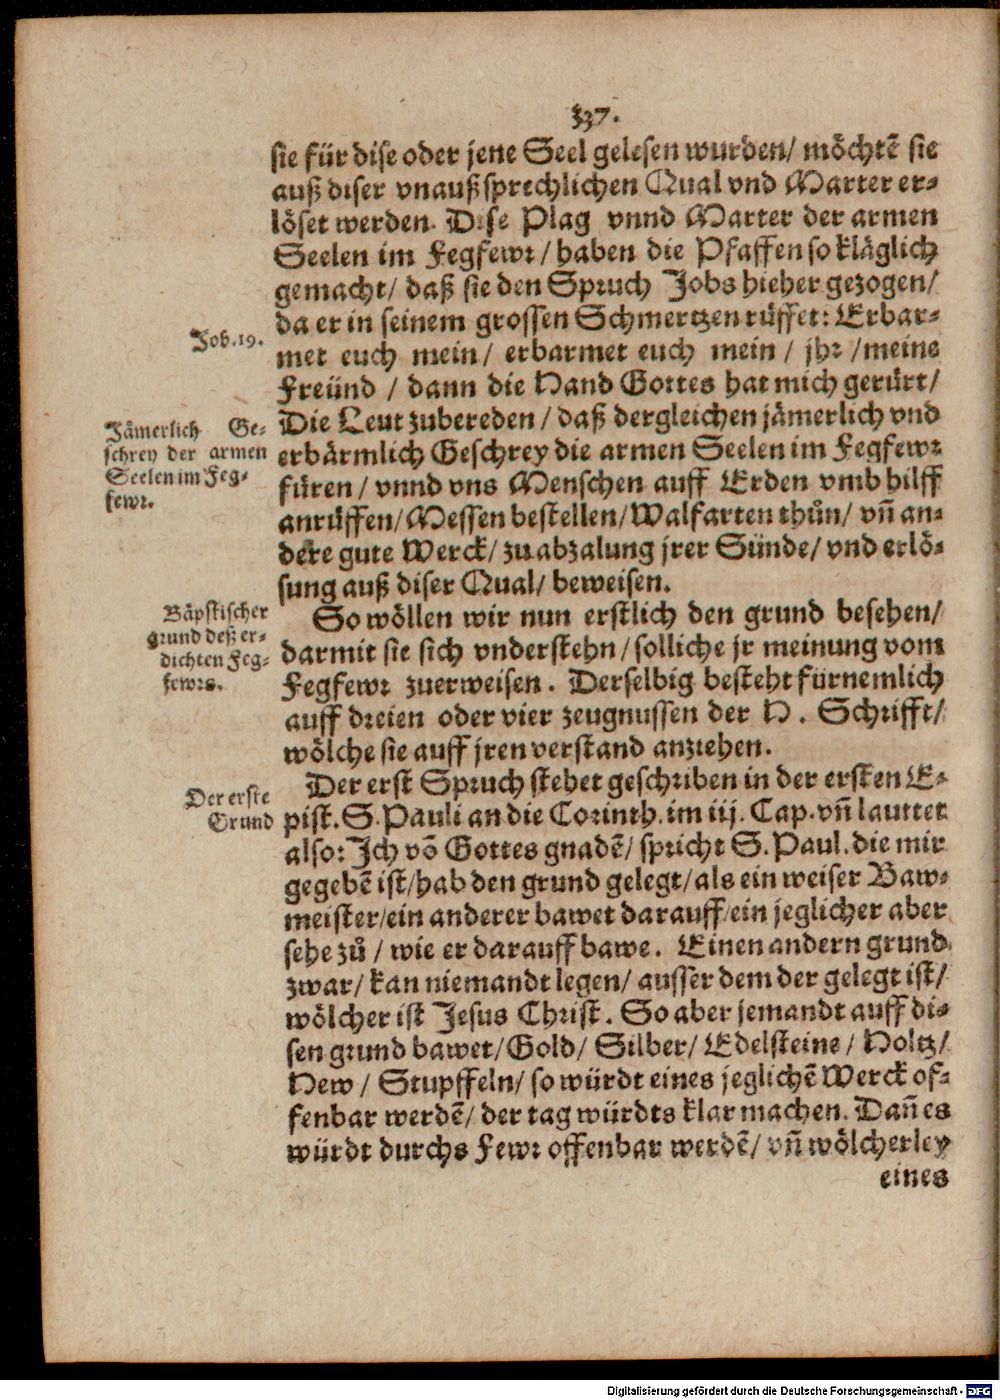 337.
sie für dise oder jene Seel gelesen wurden/ möchtẽ sie
auß diser vnaußsprechlichen Qual vnd Marter er-
löset werden. Dise Plag vnnd Marter der armen
Seelen im Fegfewr/ haben die Pfaffen so kläglich
gemacht/ daß sie den Spruch Jobs hieher gezogen/
da er in seinem grossen Schmertzen rüffet: Erbar-
Job. 19.
met euch mein/ erbarmet euch mein / jhr /meine
Freünd / dann die Hand Gottes hat mich gerürt/
Die Leut zubereden/ daß dergleichen jämerlich vnd
Jämerlich Ge-
schrey der armen
Seelen im Feg-
fewr.
erbärmlich Geschrey die armen Seelen im Fegfewr
füren/ vnnd vns Menschen auff Erden vmb hilff
anrüffen/ Messen bestellen/ Walfarten thůn/ vñ an-
dere gute Werck/ zu abzalung jrer Sünde/ vnd erlö-
sung auß diser Qual/ beweisen.
So wöllen wir nun erstlich den grund besehen/
Bäpstischer
grund deß er-
dichten Feg-
fewrs.
darmit sie sich vnderstehn/ solliche jr meinung vom
Fegfewr zuerweisen. Derselbig besteht fürnemlich
auff dreien oder vier zeugnussen der H. Schrifft/
wölche sie auff jren verstand anziehen.
Der erst Spruch stehet geschriben in der ersten E-
Der erste
Grund
pist. S. Pauli an die Corinth. im iij. Cap. vñ lauttet
also: Ich võ Gottes gnadẽ/ spricht S. Paul. die mir
gegebẽ ist/ hab den grund gelegt/ als ein weiser Baw-
meister/ ein anderer bawet darauff/ ein jeglicher aber
sehe zů / wie er darauff bawe. Einen andern grund
zwar/ kan niemandt legen/ ausser dem der gelegt ist/
wölcher ist Jesus Christ. So aber jemandt auff di-
sen grund bawet/ Gold/ Silber/ Edelsteine/ Holtz/
Hew / Stupffeln/ so würdt eines jeglichẽ Werck of-
fenbar werdẽ/ der tag würdts klar machen. Dañ es
würdt durchs Fewr offenbar werdẽ/ vñ wölcherley
eines
Digitalisierung gefördert durch die Deutsche Forschungsgemeinschaft - DFG